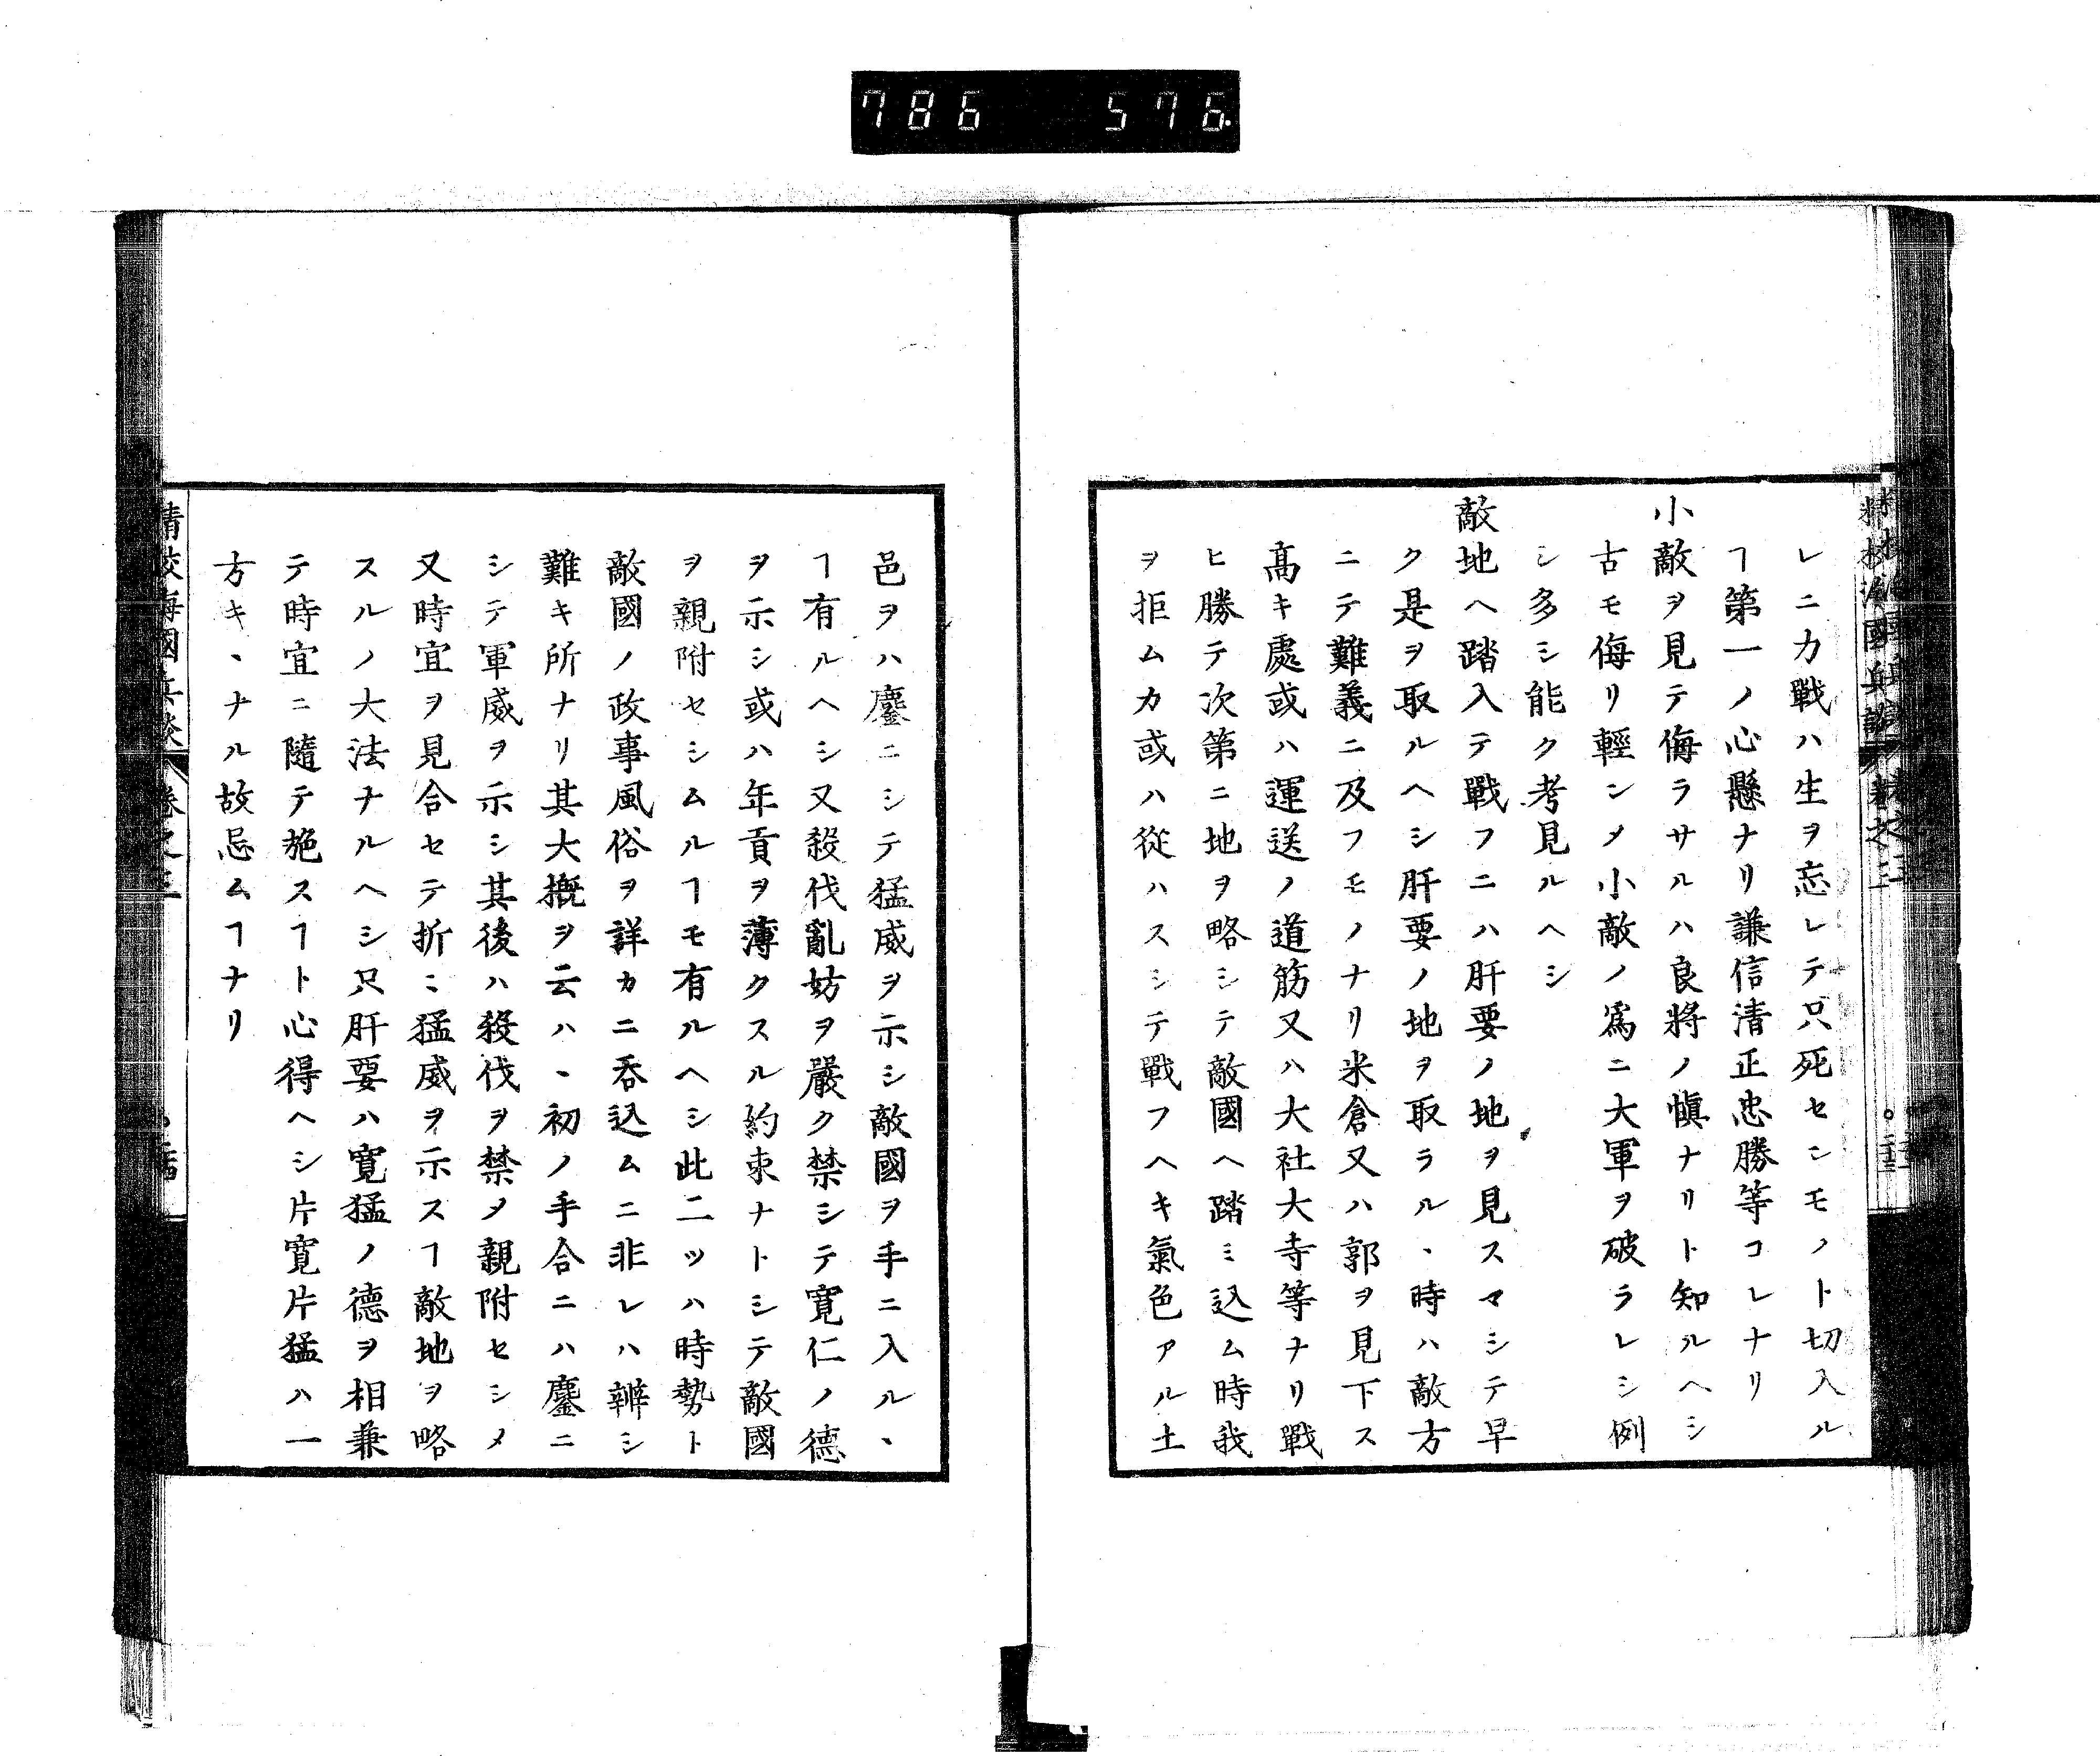 786 576.
レニカ戰ハ生ヲ忘レテ只死センモノト切入ル
ヿ第一ノ心懸ナリ謙信清正忠勝等コレナリ
小敵ヲ見テ侮ラサルハ良將ノ愼ナリト知ルヘシ
古モ侮リ輕ンメ小敵ノ爲ニ大軍ヲ破ラレシ例
シ多シ能ク考見ルヘシ
敵地ヘ踏入テ戰フニハ肝要ノ地ヲ見スマシテ早
ク是ヲ取ルヘシ肝要ノ地ヲ取ラル、時ハ敵方
ニテ難義ニ及フモノナリ米倉又ハ郭ヲ見下ス
髙キ處或ハ運送ノ道筋又ハ大社大寺等ナリ戰
ヒ勝テ次第ニ地ヲ略シテ敵國ヘ踏ミ込ム時我
ヲ拒ムカ或ハ從ハスシテ戰フヘキ氣色アル土
邑ヲハ鏖ニシテ猛威ヲ示シ敵國ヲ手ニ入ル、
ヿ有ルヘシ又殺伐亂妨ヲ嚴ク禁シテ寛仁ノ德
ヲ示シ或ハ年貢ヲ薄クスル約束ナトシテ敵國
ヲ親附セシムルヿモ有ルヘシ此二ッハ時勢ト
敵國ノ政事風俗ヲ詳カニ呑込ムニ非レハ辨シ
難キ所ナリ其大概ヲ云ハ、初ノ手合ニハ鏖ニ
シテ軍威ヲ示シ其後ハ殺伐ヲ禁メ親附セシメ
又時宜ヲ見合セテ折〻猛威ヲ示スヿ敵地ヲ略
スルノ大法ナルヘシ只肝要ハ寛猛ノ德ヲ相兼
テ時宜ニ隨テ施スヿト心得ヘシ片寛片猛ハ一
方キ、ナル故忌ムヿナリ
精校海國兵談 卷之三